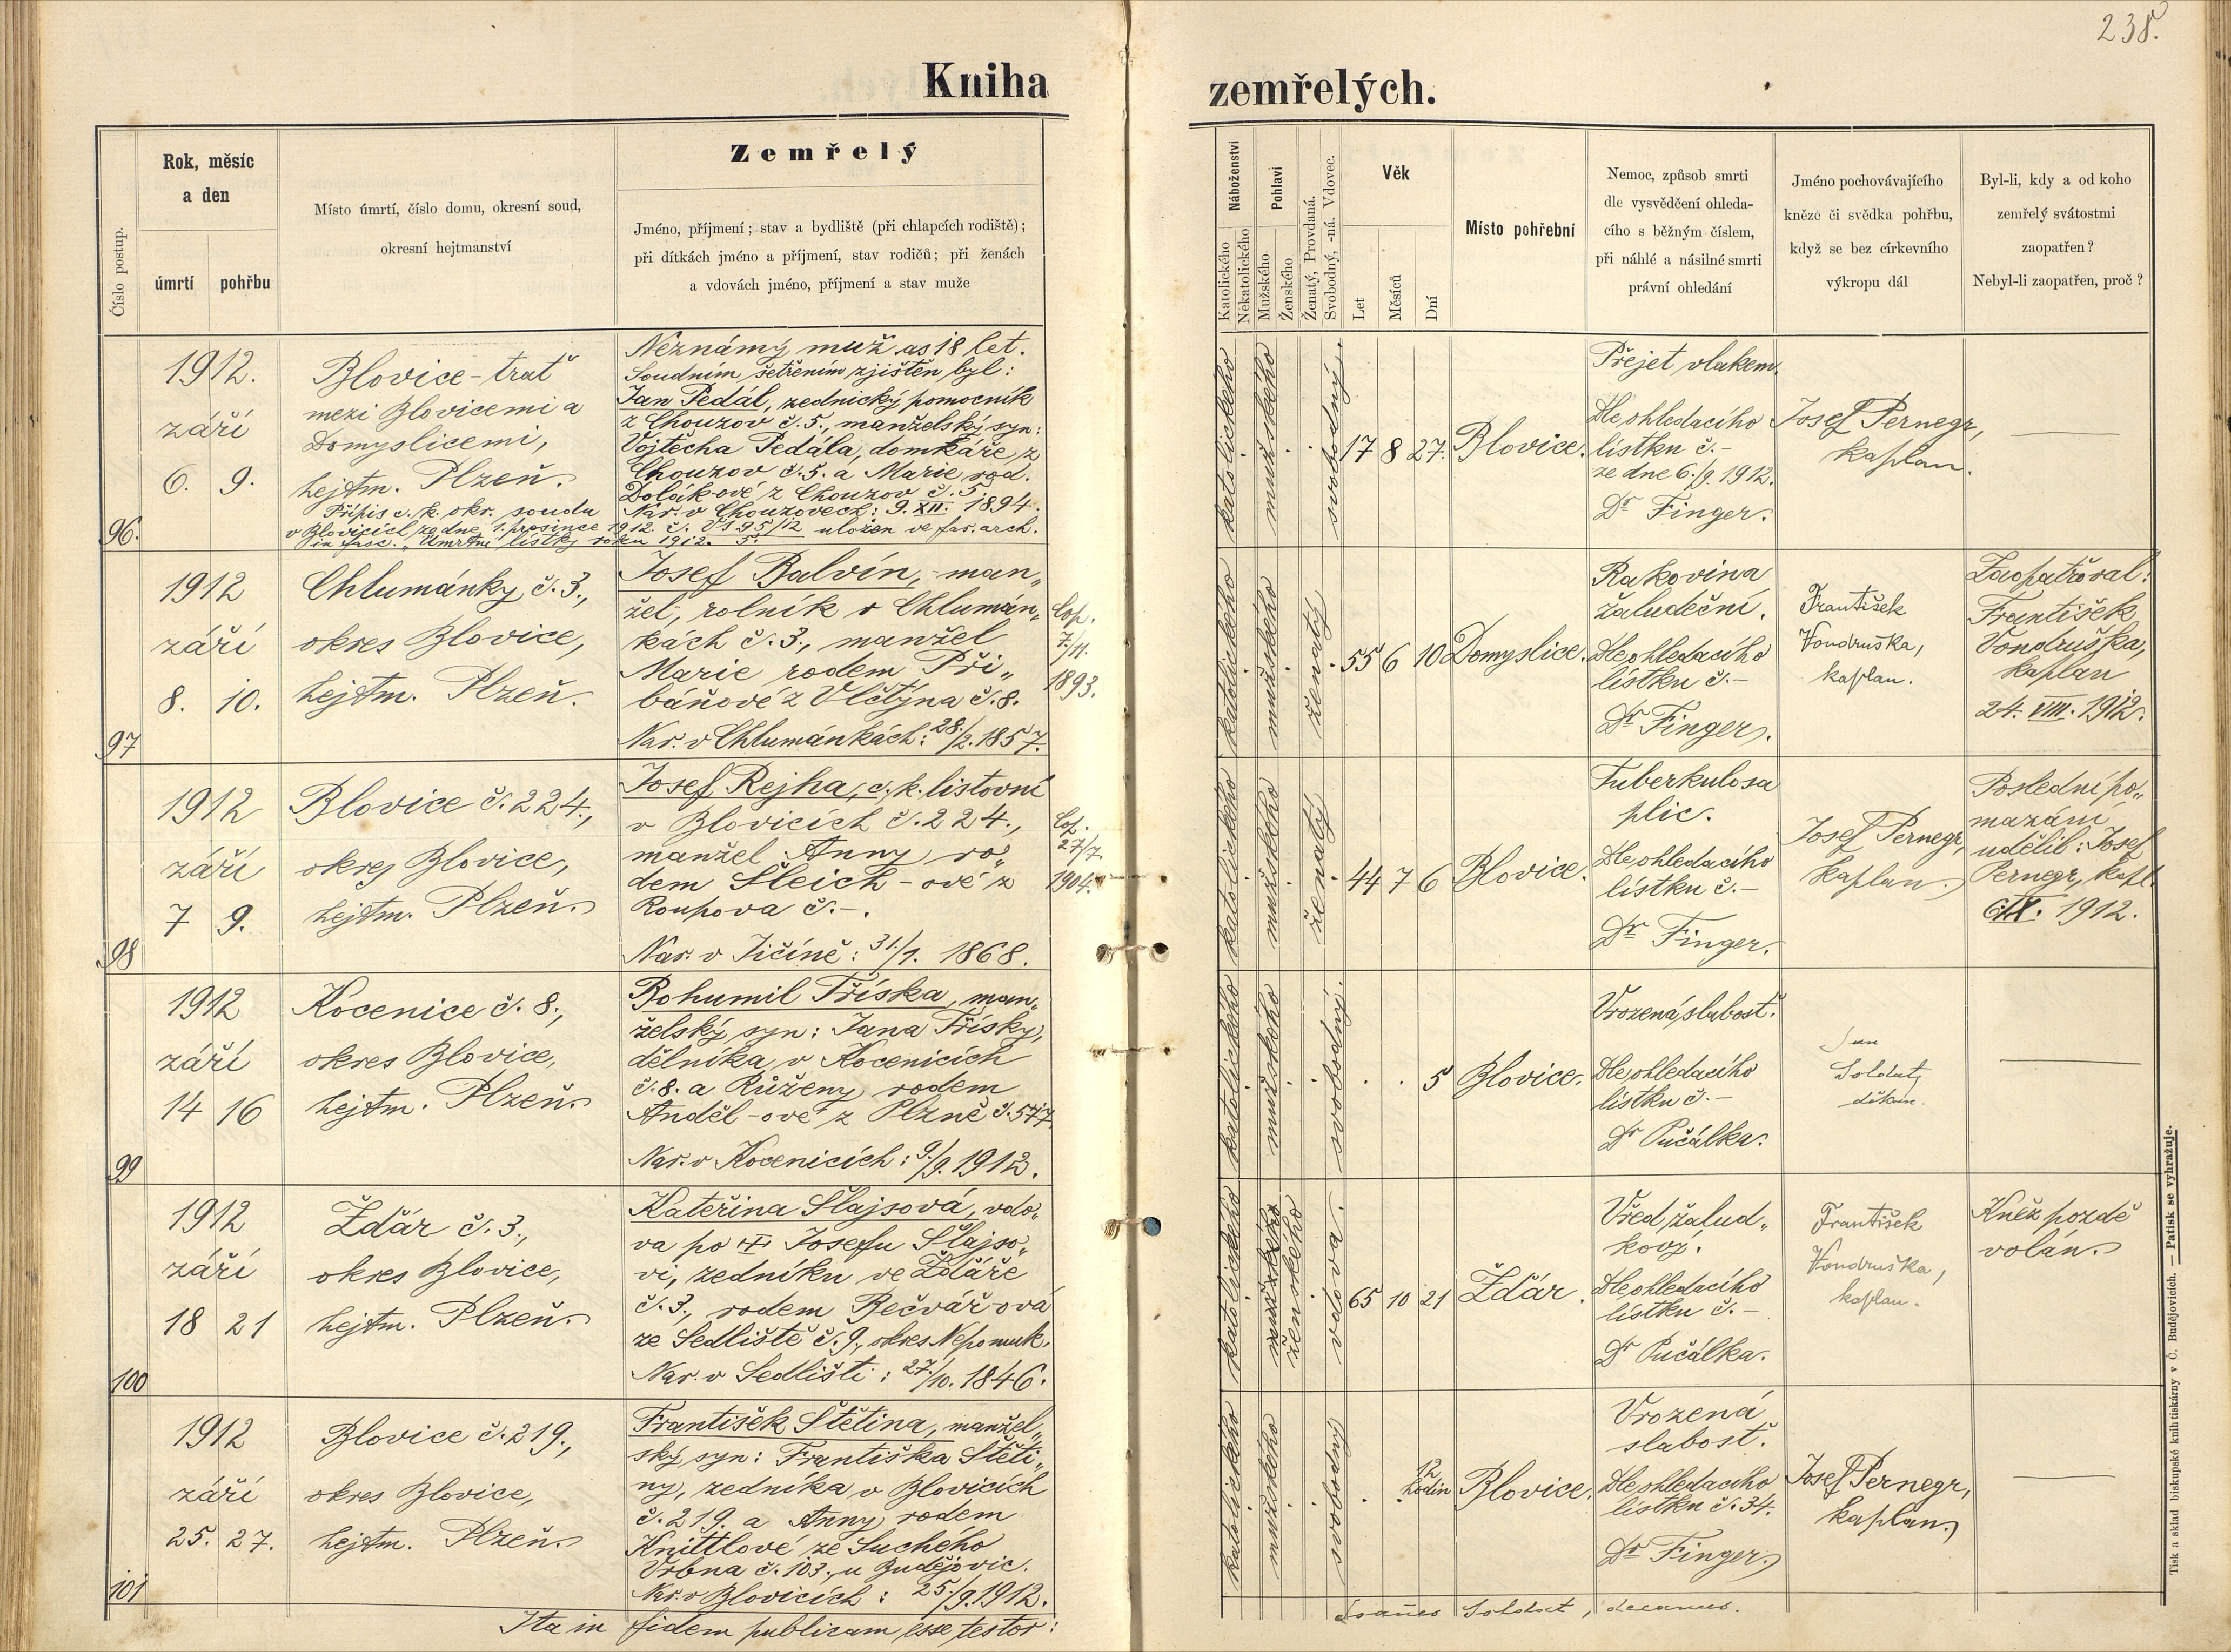 238.
Kniha zemřelých.
Číslo postup.
Rok, měsíc
a den
úmrtí
pohřbu
Místo úmrtí, číslo domu, okresní soud,
okresní hejtmanství
Zemřelý
Jméno, příjmení; stav a bydliště (při chlapcích rodiště);
při dítkách jméno a příjmení, stav rodičů; při ženách
a vdovách jméno, příjmení a stav muže
Náboženství
Katolického
Nekatolického
Pohlaví
Mužského
Ženského
Ženatý, Provdaná.
Svobodný, -ná. Vdovec.
Věk
Let
Měsíců
Dní
Místo pohřební
Nemoc, způsob smrti
dle vysvědčení ohleda-
cího s běžným číslem,
při náhlé a násilné smrti
právní ohledání
Jméno pochovávajícího
kněze či svědka pohřbu,
když se bez církevního
výkropu dál
Byl-li, kdy a od koho
zemřelý svátostmi
zaopatřen?
Nebyl-li zaopatřen, proč?
96.
1912.
září
6. 9.
Blovice-trať
mezi Blovicemi a
Domyslicemi,
hejtm. Plzeň.
Neznámý muž as 18 let.
Soudním šetřením zjištěn byl:
Jan Pedál, zednický pomocník
z Chouzov č. 5., manželský syn:
Vojtěcha Pedála, domkáře z
Chouzov č. 5. a Marie rod.
Dolák-ové z Chouzov č. 5.
Nar. v Chouzovech: 9. XII. 1894.
Přípis c. k. okr. soudu
v Blovicích ze dne 1. prosince 1912. č. uložen ve far. arch.
in fasc. "Úmrtní lístky roku 1912.
katolického
mužského
svobodný.
17 8 27.
Blovice.
Přejet vlakem.
Dle ohledacího
lístku č. -
ze dne 6./9. 1912.
Dr Finger.
Josef Pernegr,
kaplan.
97
1912
září
8. 10.
Chlumánky č. 3.,
okres Blovice,
hejtm. Plzeň.
Josef Balvín, man„
žel, rolník v Chlumán„
kách č. 3., manžel
Marie rodem Při„
báňové z Vlčtýna č. 8.
Nar. v Chlumánkách: 28./2. 1857.
Cop.
7./11.
1893.
katolického
mužského
ženatý
55 6 10
Domyslice.
Rakovina
žaludeční.
Dle ohledacího
lístku č. -
Dr Finger.
František
Vondruška,
kaplan.
Zaopatřoval:
František
Vondruška,
kaplan
24. VIII. 1912.
98
1912
září
7 9.
Blovice č. 224.,
okres Blovice,
hejtm. Plzeň.
Josef Rejha, c. k. listovní
v Blovicích č. 224.,
manžel Anny ro„
dem Šleich-ové z
Roupova č. -.
Nar. v Jičíně: 31./1. 1868.
Cop.
27/7.
1904.
katolického
mužského
ženatý
44 7 6
Blovice.
Tuberkulosa
plic.
Dle ohledacího
lístku č. -
Dr Finger.
Josef Pernegr,
kaplan.
Poslední po„
mazání
udělil: Josef
Pernegr, kapl.
IX. 1912.
99
1912
září
14 16
Kocenice č. 8.,
okres Blovice,
hejtm. Plzeň.
Bohumil Tříska, man„
želský syn: Jana Třísky,
dělníka v Kocenicích
č. 8. a Růženy rodem
Anděl-ové z Plzně č. 577.
Nar. v Kocenicích: 9./9. 1912.
katolického
mužského
svobodný.
5
Blovice.
Vrozená slabost.
Dle ohledacího
lístku č. -
Dr Pučálka.
Jan
Soldat,
děkan.
100
1912
září
18 21
Žďár č. 3.,
okres Blovice,
hejtm. Plzeň.
Kateřina Šlajsová, vdo„
va po ✝ Josefu Šlajso„
vi, zedníku ve Žďáře
č. 3., rodem Bečvář-ová
ze Sedliště č. 9., okres Nepomuk.
Nar. v Sedlišti: 27./10. 1846.
katolického
mužského
ženského
vdova.
65 10 21
Žďár.
Vřed žalud„
kový.
Dle ohledacího
lístku č. -
Dr Pučálka.
František
Vondruška,
kaplan.
Kněz pozdě
volán.
101
1912
září
25. 27.
Blovice č. 219.,
okres Blovice,
hejtm. Plzeň.
František Štětina, manžel„
ský syn: Františka Štěti„
ny, zedníka v Blovicích
č. 219. a Anny rodem
Knittlové ze Suchého
Vrbna č. 103., u Budějovic.
Nar. v Blovicích: 25./9. 1912.
katolického
mužského
svobodný
12
hodin
Blovice.
Vrozená
slabost.
Dle ohledacího
lístku č. 34.
Dr Finger.
Josef Pernegr,
kaplan.
Ita in fidem publicam esse testor: Joannes Soldat, decanus.
Tisk a sklad biskupské knihtiskárny v Č. Budějovicích. — Patisk se vyhražuje.